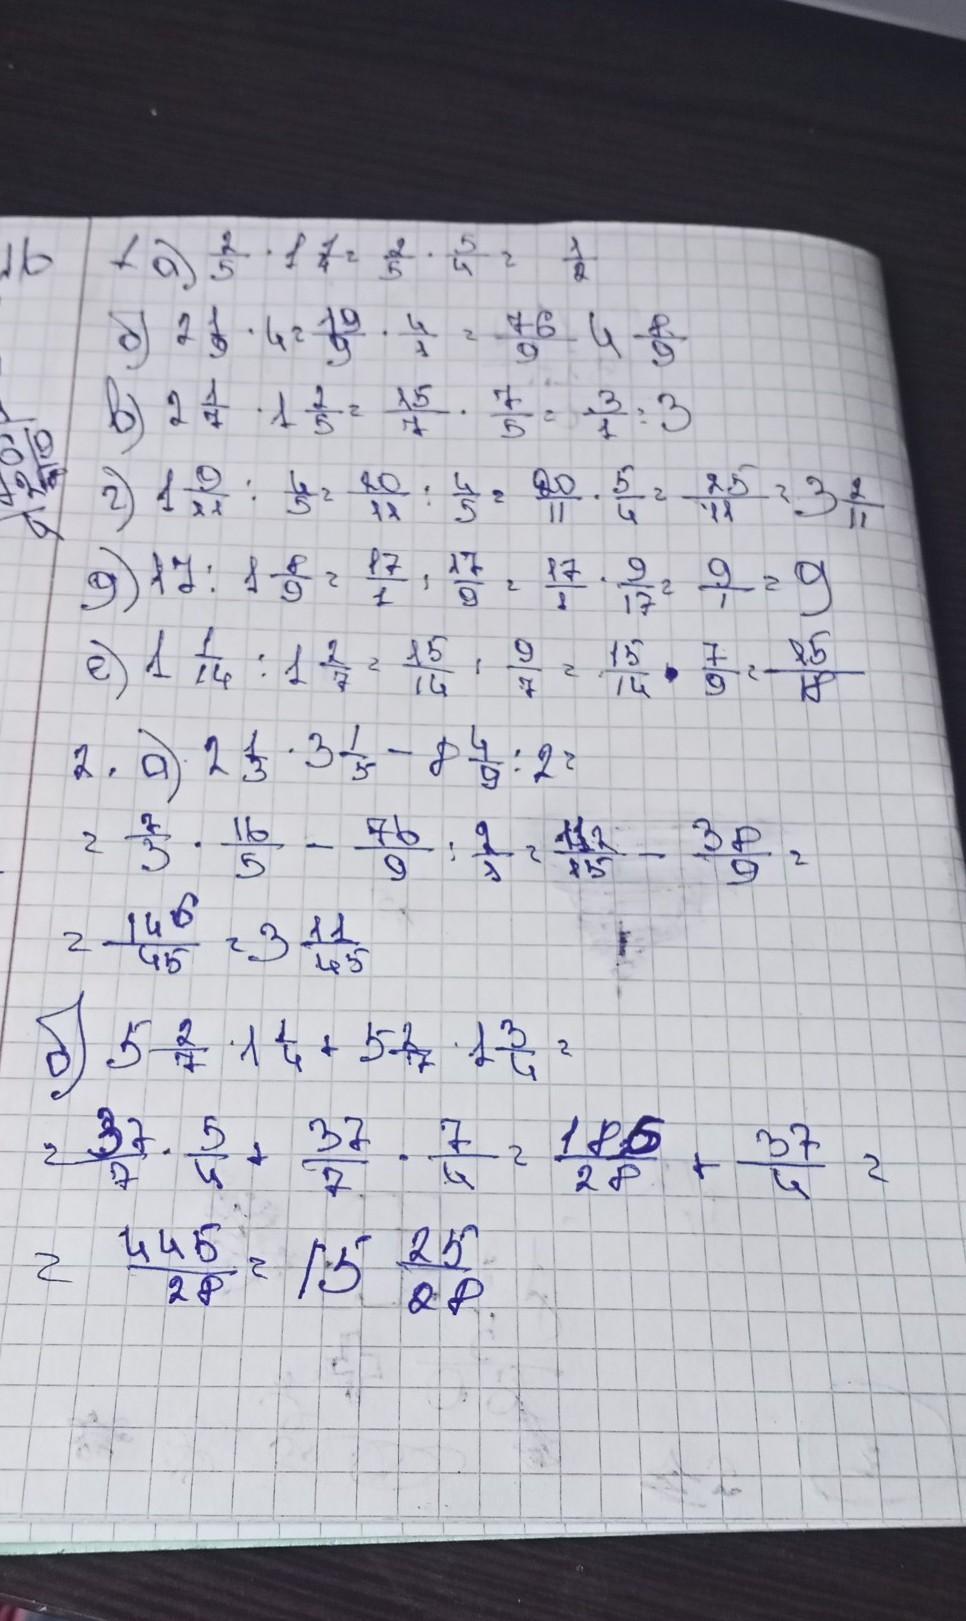 1 а) 2/5 · 1 1/4 = 2/5 · 5/4 = 1/2
б) 2 1/9 · 4 = 19/9 · 4/1 = 76/9 4 8/9
в) 2 1/7 · 1 2/5 = 15/7 · 7/5 = 3/1 = 3
г) 1 9/11 : 4/5 = 20/11 : 4/5 = 20/11 · 5/4 = 25/11 = 3 2/11
д) 17 : 1 8/9 = 17/1 : 17/9 = 17/1 · 9/17 = 9/1 = 9
е) 1 1/14 : 1 2/7 = 15/14 : 9/7 = 15/14 · 7/9 = 25/18
2. а) 2 1/3 · 3 1/5 - 8 4/9 : 2 =
= 7/3 · 16/5 - 76/9 : 2/1 = 112/15 - 38/9 =
= 146/45 = 3 11/45
б) 5 2/7 · 1 1/4 + 5 2/7 · 1 3/4 =
= 37/7 · 5/4 + 37/7 · 7/4 = 185/28 + 37/4 =
= 445/28 = 15 25/28